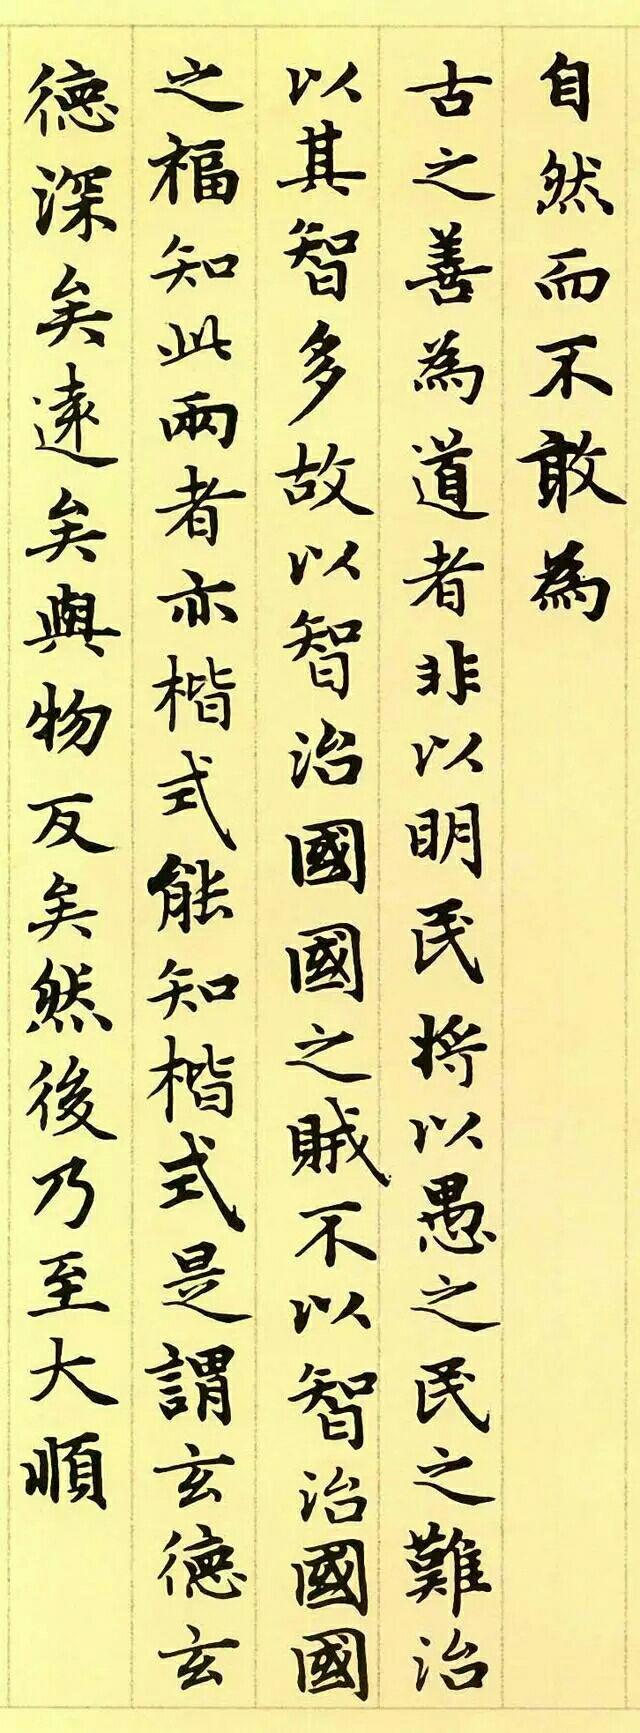 自然而不敢為
古之善為道者非以明民將以愚之民之難治
以其智多故以智治國國之賊不以智治國國
之福知此兩者亦楷式能知楷式是謂玄德玄
德深矣遠矣與物反矣然後乃至大順